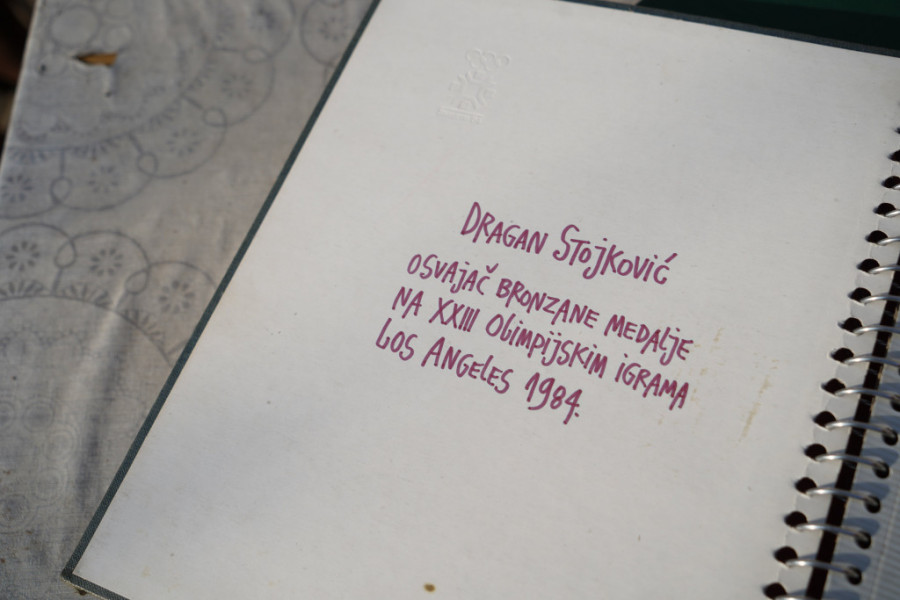 DRAGAN STOJKOVIĆ
OSVAJAČ BRONZANE MEDALJE
NA XXIII OLIMPIJSKIM IGRAMA
LOS ANGELES 1984.